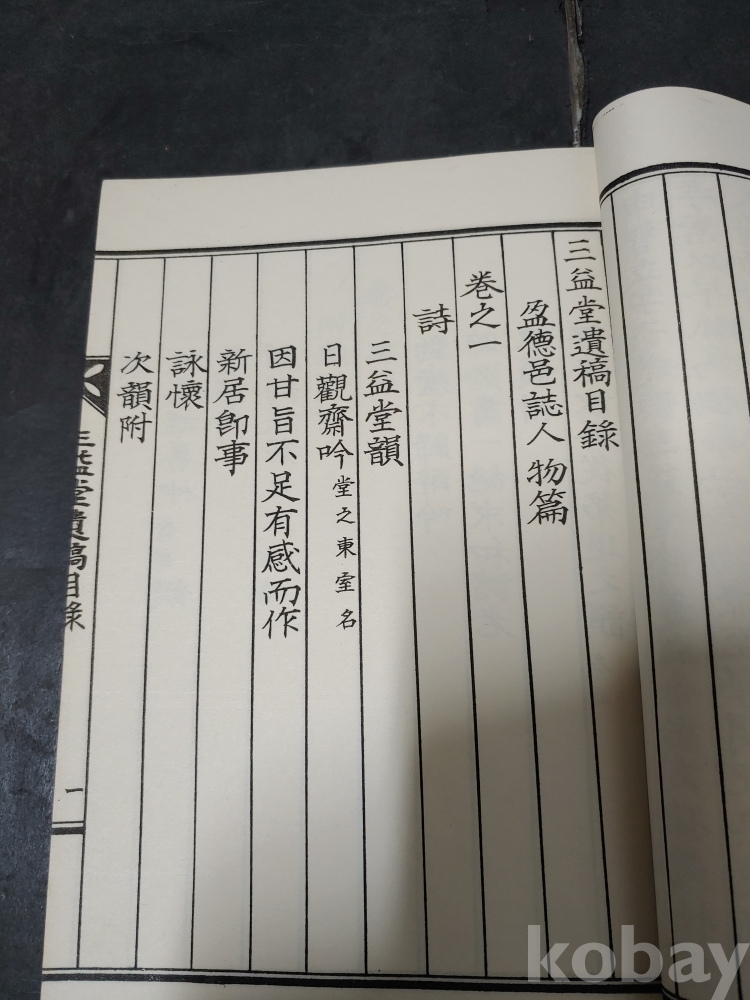 三益堂遺稿目錄
盈德邑誌人物篇
卷之一
詩
三益堂韻
日觀齋吟 堂之東室名
因甘旨不足有感而作
新居卽事
詠懷
次韻附
三益堂遺稿目錄
一
kobay